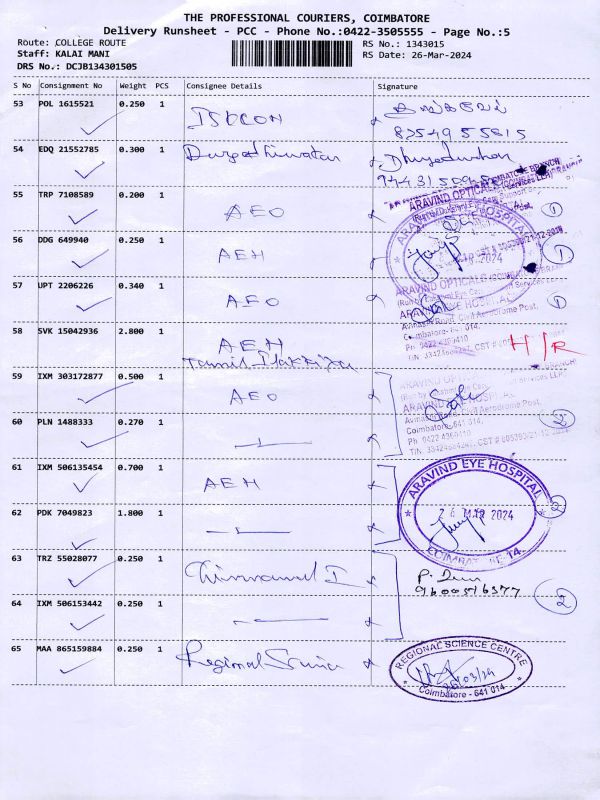 THE PROFESSIONAL COURIERS, COIMBATORE
Delivery Runsheet - PCC - Phone No.:0422-3505555 - Page No.:5
Route: COLLEGE ROUTE RS No.: 1343015
Staff: KALAI MANI RS Date: 26-Mar-2024
DRS No.: DCJB134301505
S No Consignment No Weight PCS Consignee Details Signature
53 POL 1615521 0.250 1 ISKCON
8354955815
54 EDQ 21552785 0.300 1
55 TRP 7108589 0.200 1 AEO 1
56 DDG 649940 0.250 1 AEH 1
ARAVIND EYE HOSPITAL
57 UPT 2206226 0.340 1 AEO 1
ARAVIND OPTICALS
Civil Aerodrome Post,
58 SVK 15042936 2.800 1 AEH H/R
59 IXM 303172877 0.500 1 AEO 2
Civil Aerodrome Post,
Coimbatore-641 014,
Ph 0422 4360410
60 PLN 1488333 0.270 1
61 IXM 506135454 0.700 1 AEH 2
ARAVIND EYE HOSPITAL
26 MAR 2024
62 PDK 7049823 1.800 1
63 TRZ 55028077 0.250 1
9600516377 2
64 IXM 506153442 0.250 1
65 MAA 865159884 0.250 1 Regional Science
REGIONAL SCIENCE CENTRE
26/03/24
Coimbatore - 641 014